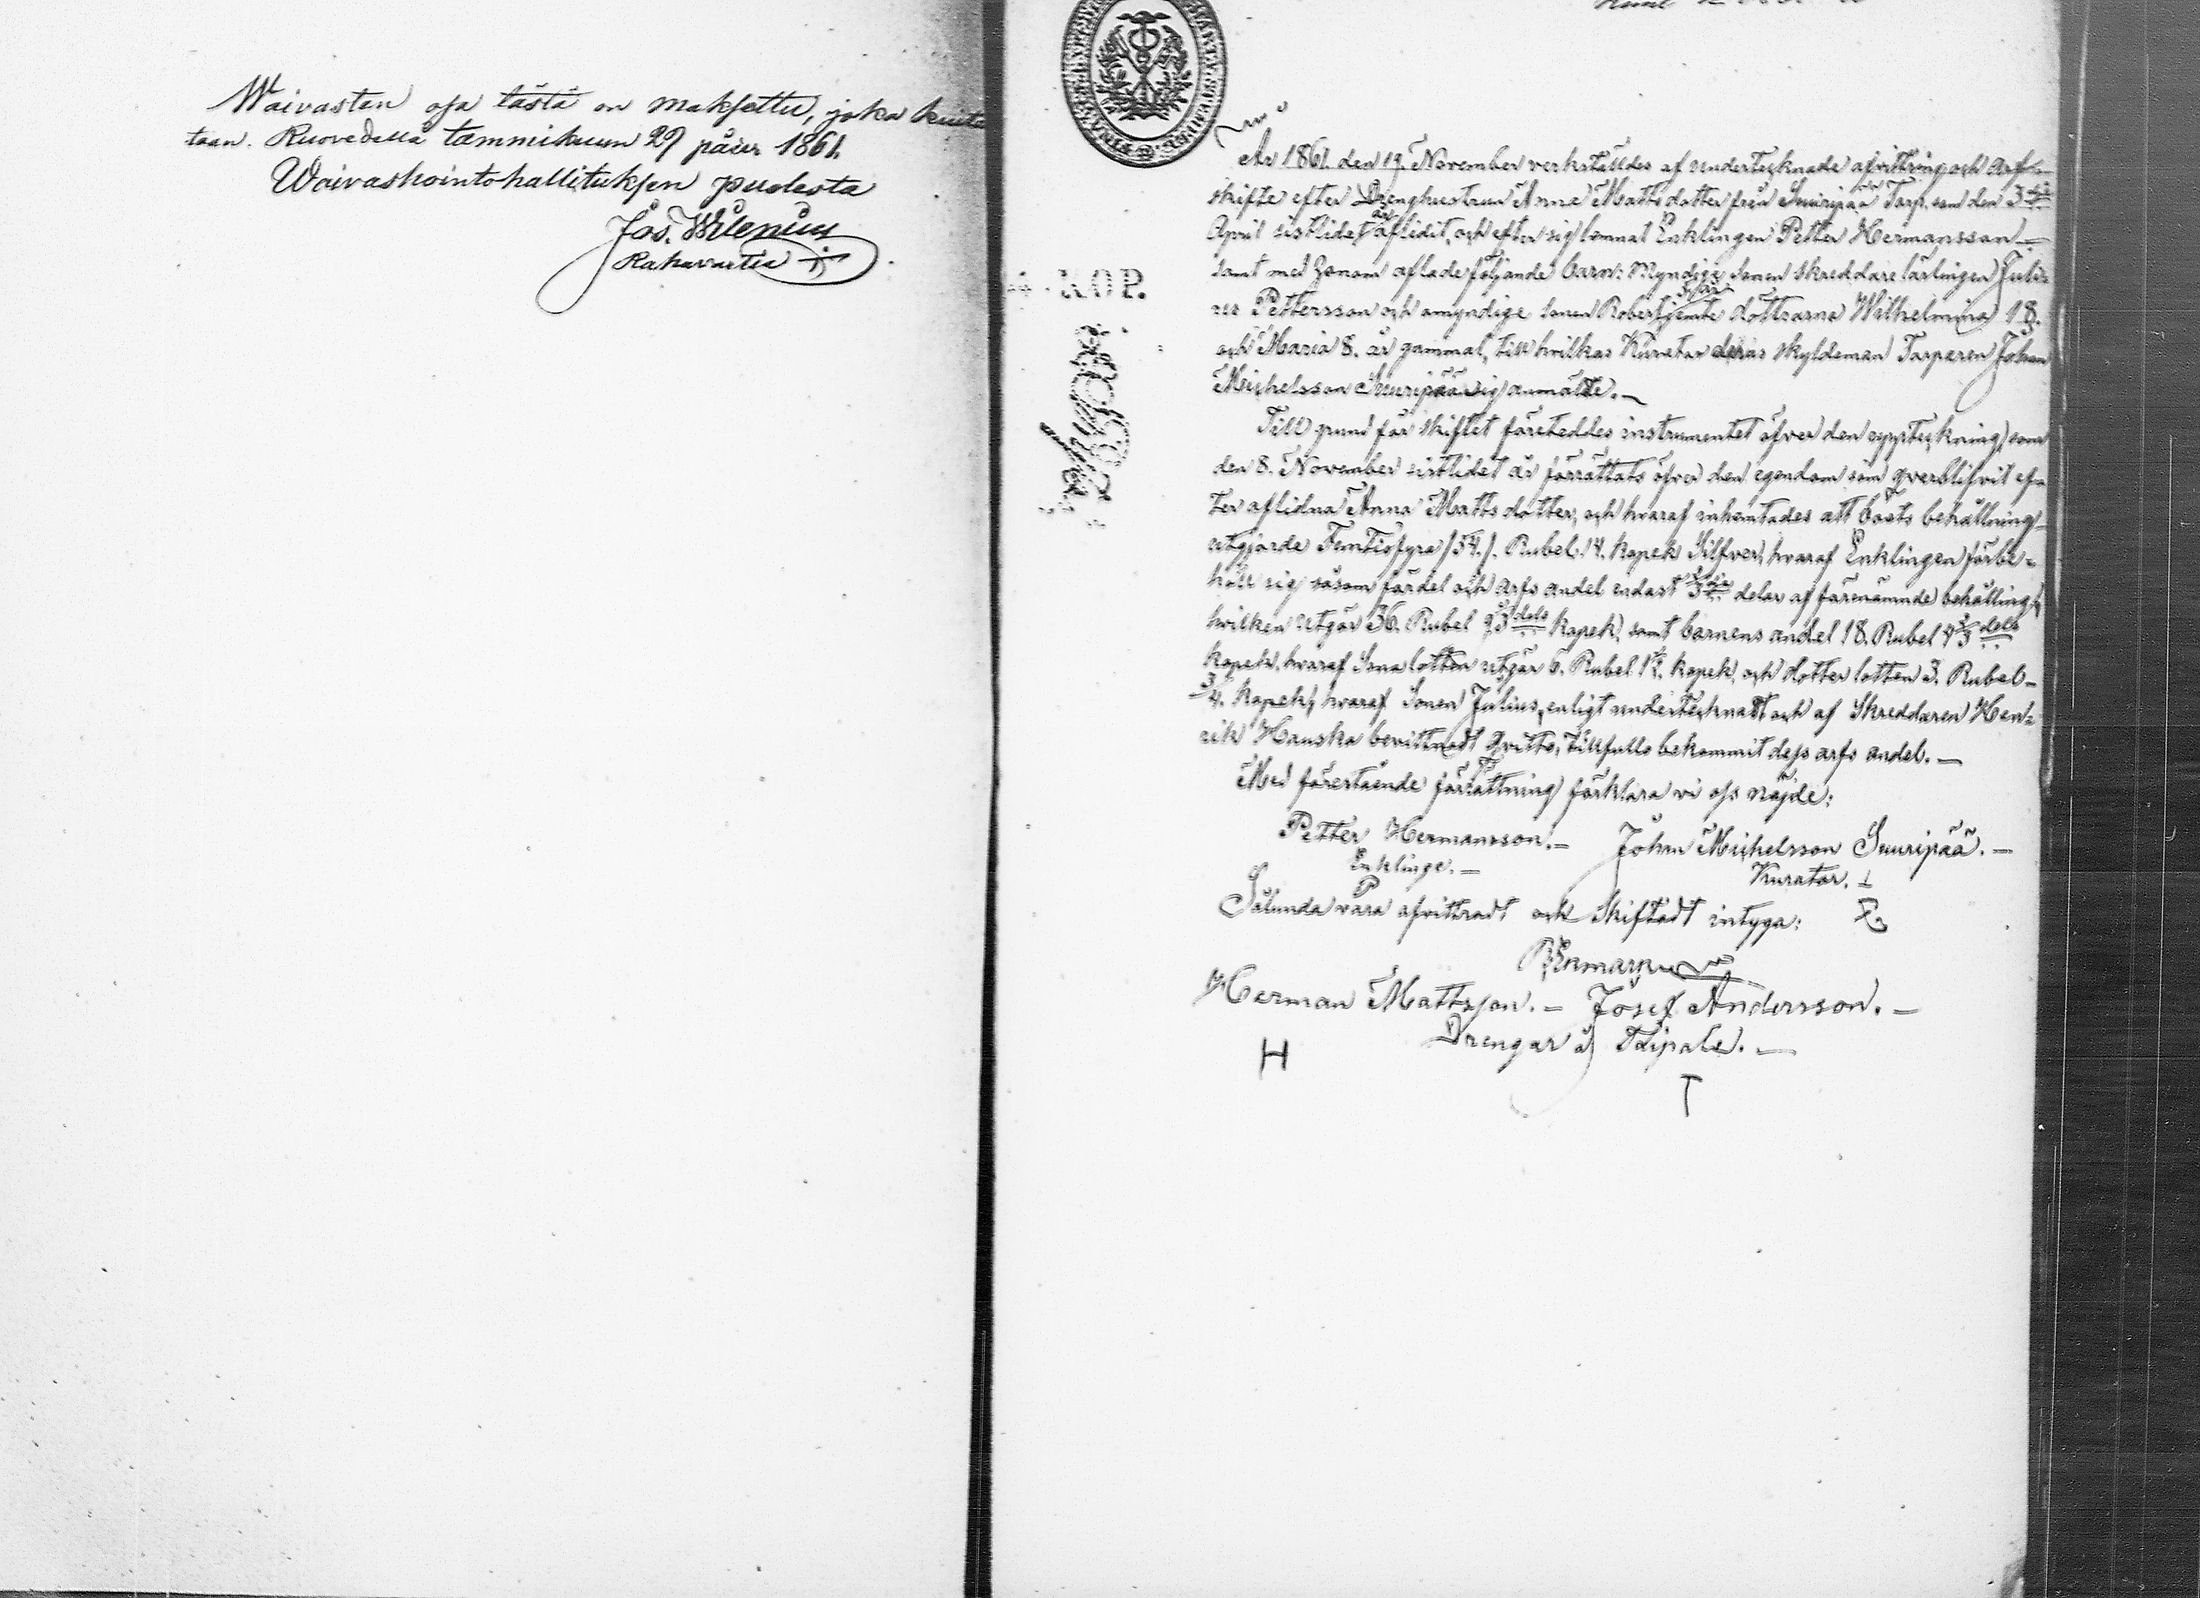 Waivasten osa tästä on maksettu, joka kuita
taan. Ruovedellä tammikuun 29 päiv 1861.
Waivashointohallituksen puolesta
Jos. Wilenius
Rahavartia
4 KOP.
År 1861. den 19. November verkställdes af undertecknade afvittring och arf-
skifte efter Drenghustrun Anna Mattsdotter från Suuripää Torp, som den 3dje
April sistlidet år aflidit, och efter sig lemnat Enklingen Petter Hermansson
samt med honom aflade följande barn: Myndige sonen skreddare lärlingen Juli-
us Pettersson och omyndige sonen Robert jemte döttrarna Wilhelmina 18.
och Maria 8. år gammal, till hvilkas Kurator deras skyldeman Torparen Johan
Michelsson Suuripää sig anmälte.
Till grund för skiftet företeddes instrumentet öfver den uppteckning, som
den 8. November sistlidet är förrättats öfver den egendom som qvarblifvit ef-
ter aflidna Anna Mattsdotter, och hvaraf inhemtades att boets behållning
utgjorde Femtiofyra /54./. Rubel 14. kopek Silfver, hvaraf Enklingen förbe-
höll sig såsom fördel och arfs andel endast 2/3 delar af förenämnde behållning,
hvilken utgör 36. Rubel 9 1/3 dels kopek, samt barnens andel 18. Rubel 4 2/3 dels
kopek, hvaraf Sona lotten utgör 6. Rubel kopek, och dotter lotten 3. Rubel
kopek, hvaraf Sonen Julius, enligt undertecknadt och af Skreddaren Hen-
rik Hauska bevittnadt qvitto, tillfullo bekommit dess arfs andel.
Med förestående förrättning förklara vi oss nöjde:
Petter Hermansson. Johan Michelsson Suuripää.
Enklinge. Kurator.
Sålunda vara afvittradt och Skiftadt intyga:
Herman Mattsson. Josef Andersson.
Drengar å
H
T